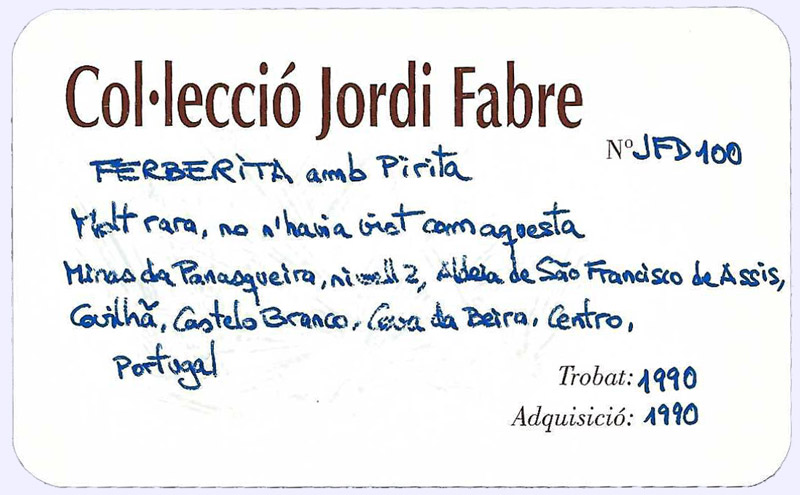 Col·lecció Jordi Fabre
Nº JFD100
FERBERITA amb Pirita
Molt rara, no n'havia vist com aquesta
Minas da Panasqueira, nivell 2, Aldeia de São Francisco de Assis,
Covilhã, Castelo Branco, Cova da Beira, Centro,
Portugal
Trobat: 1990
Adquisició: 1990